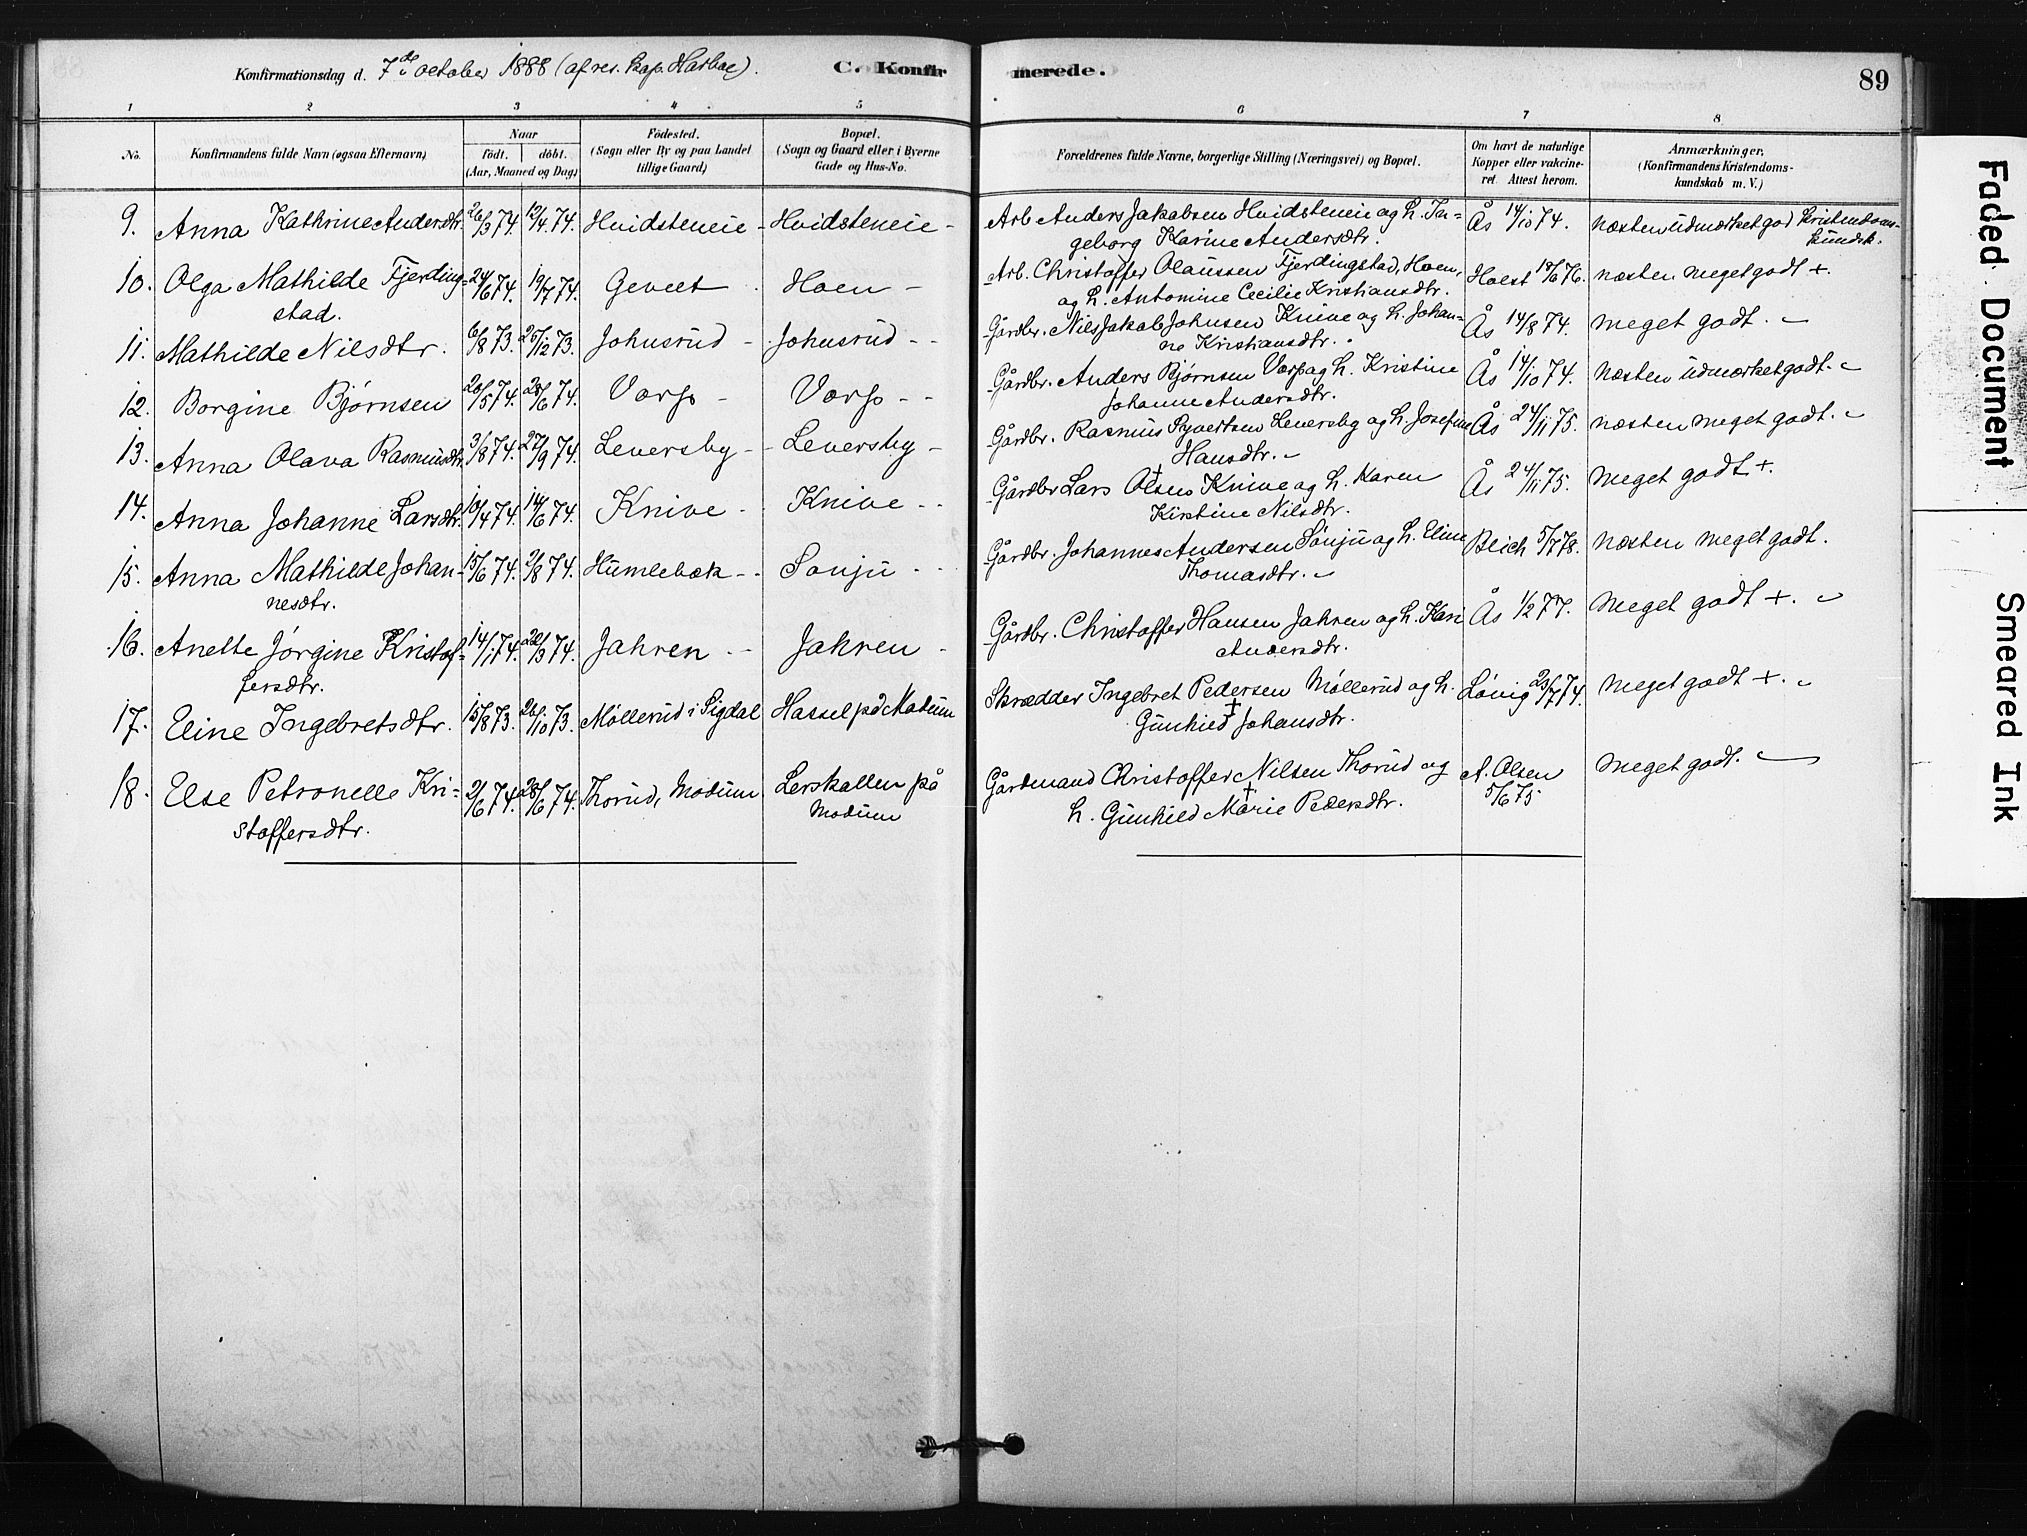 Konfirmationsdag d. 7de october 1888 (af res. kap. Harboe).
C. Konfirmerede.
89
1 2 3 4 5 6 7 8
No.
Konfirmandens fulde Navn (ogsaa Efternavn)
Naar
födt. döbt.
(Aar, Maaned og Dag)
Födested.
(Sogn eller By og paa Landet
tillige Gaard)
Bopæl.
(Sogn og Gaard eller i Byerne
Gade og Hus-No.
Forældrenes fulde Navne, borgerlige Stilling (Næringsvei) og Bopæl.
Om havt de naturlige
Kopper eller vakcine-
ret Attest herom.
Anmærkninger.
(Konfirmandens Kristendoms-
kundskab m. V.)
9. Anna Kathrine Andersdtr. 26/3 74. 12/4 74. Hvidsteneie - Hvidsteneie - Arb. Anders Jakobsen Hvidsteneie og h. In- Ås 14/10 74. næsten udmærket god kristendoms-
geborg Karine Andersdtr. kundsk.
10. Olga Mathilde Fjerding- 24/6 74. 19/7 74. Hoen - Arb. Christoffer Olaussen Fjerdingstad, Hoen, Holst 19/6 76. næsten meget godt +.
stad. og h. Antomine Cecilie Kristiansdtr.
11. Mathilde Nilsdtr. 6/8 73. 26/12 73. Johnsrud - Johnsrud - - Gårdbr. Nils Jakob Johnsen Knive og h. Johan- Ås 14/8 74. meget godt. -
ne Kristiansdtr.
12. Borgine Bjørnsen 20/5 74. 28/6 74. Vorp - Vorp - - Gårdbr. Anders Bjørnsen Vorp og h. Kristine Ås 14/10 74. næsten udmærket godt. -
Johanne Andersdtr.
13. Anna Olava Rasmusdtr. 3/8 74. 27/9 74. Leversby - Leversby - Gårdbr. Rasmus Syvertsen Leversby og h. Josefine Ås 24/11 75. næsten meget godt. -
Hansdtr. -
14. Anna Johanne Larsdtr. 10/4 74. 14/6 74. Knive - Knive - - Gårdbr. Lars Olsen Knive og h. Karen Ås 24/11 75. meget godt +.
Kirstine Nilsdtr.
15. Anna Mathilde Johan- 15/6 74. 2/8 74. Humlebæk - - Sønju - - Gårdbr. Johannes Andersen Sønju og h. Eline Blich 5/7 78. næsten meget godt.
nesdtr. Thomasdtr. -
16. Anette Jørgine Kristof- 14/1 74. 22/3 74. Jahren - - Jahren - Gårdbr. Christoffer Hansen Jahren og h. Kari Ås 1/2 77. meget godt +. -
fersdtr. Andersdtr.
17. Eline Ingebretsdtr. 15/8 73. 26/10 73. Møllerud i Sigdal Hassel på Modum Skrædder Ingebret Pedersen Møllerud og h. Løvig 23/7 74. meget godt +. -
Gunhild Johansdtr.
18. Else Petronelle Kri- 2/6 74. 28/6 74. Thorud, Modum Lerskallen på Gårdmand Christoffer Nilsen Thorud og A. Olsen meget godt. -
stoffersdtr. Modum h. Gunhild Marie Pedersdtr. 5/6 75
Faded Document
Smeared Ink